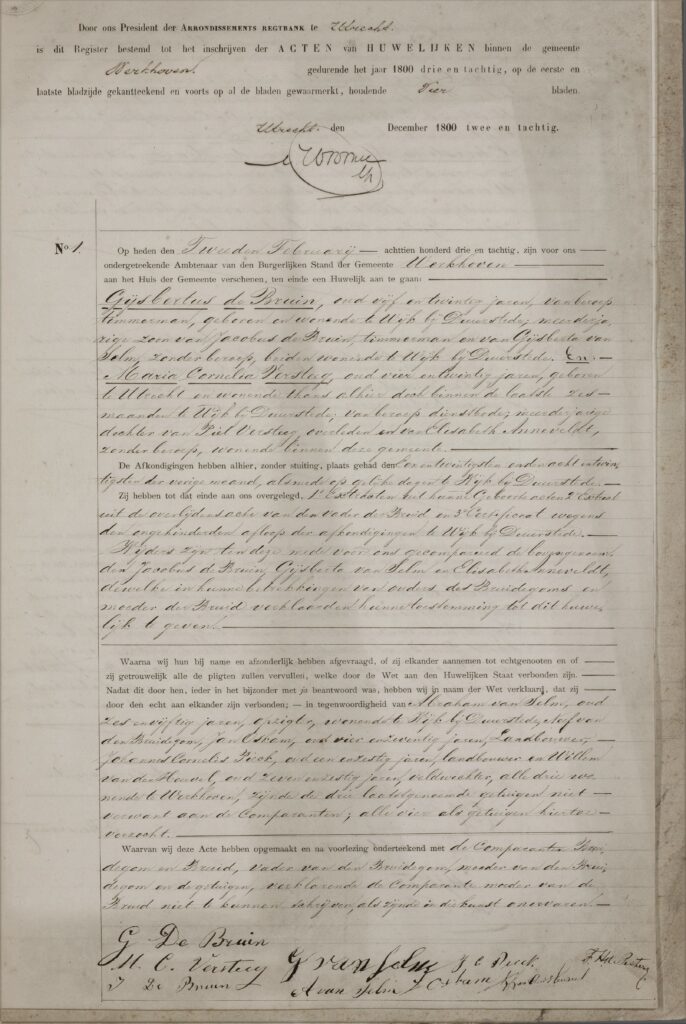 Door ons President der ARRONDISSEMENTS REGTBANK te Utrecht.
is dit Register bestemd tot het inschrijven der ACTEN van HUWELIJKEN binnen de gemeente
Werkhoven. gedurende het jaar 1800 drie en tachtig, op de eerste en
laatste bladzijde gekantteekend en voorts op al de bladen gewaarmerkt, houdende Vier bladen.
Utrecht. den December 1800 twee en tachtig.
No 1.
Op heden den Tweeden Februarij achttien honderd drie en tachtig, zijn voor ons
ondergeteekende Ambtenaar van den Burgerlijken Stand der Gemeente Werkhoven
aan het Huis der Gemeente verschenen, ten einde een Huwelijk aan te gaan:
Gijsbertus de Bruin, oud vijf en twintig jaren, van beroep
timmerman, geboren en wonende te Wijk bij Duurstede, meerderja,
rige zoon van Jacobus de Bruin, timmerman en van Gijsberta van
Selm, zonder beroep, beiden wonende te Wijk bij Duurstede. En:
Maria Cornelia Versteeg, oud vier en twintig jaren, geboren
te Utrecht en wonende thans alhier doch binnen de laatste zes
maanden te Wijk bij Duurstede, van beroep dienstbode, meerderjarige
dochter van Piel Versteeg, overleden en van Elisabeth Anneveldt,
zonder beroep, wonende binnen deze gemeente.
De Afkondigingen hebben alhier, zonder stuiting, plaats gehad den een en twintigsten en den acht en twin,
tigsten der vorige maand, alsmede op gelijke dagen te Wijk bij Duurstede.
Zij hebben tot dat einde aan ons overgelegd, 1e Extracten uit hunne Geboorte acten 2e Extract
uit de overlijdensacte van den vader der Bruid en 3e Certificaat wegens
den ongehinderden afloop der afkondigingen te Wijk bij Duurstede.
Wijders zijn ten deze mede voor ons gecompareerd de
den Jacobus de Bruin, Gijsberta van Selm en Elisabeth Anneveldt,
dewelke in hunne betrekkingen van ouders des Bruidegoms en
moeder der Bruid verklaarden hunne toestemming tot dit huwe,
lijk te geven.
Waarna wij hun bij name en afzonderlijk hebben afgevraagd, of zij elkander aannemen tot echtgenooten en of
zij getrouwelijk alle de pligten zullen vervullen, welke door de Wet aan den Huwelijken Staat verbonden zijn.
Nadat dit door hen, ieder in het bijzonder met ja beantwoord was, hebben wij in naam der Wet verklaard, dat zij
door den echt aan elkander zijn verbonden; — in tegenwoordigheid van Abraham van Selm, oud
zes en vijftig jaren, opzigter, wonende te Wijk bij Duurstede, Neef van
den Bruidegom, Jan Oskam, oud vier en zeventig jaren, Landbouwer,
Johannes Cornelis Peek, oud een en zestig jaren, landbouwer en Willem
van den Heuvel, oud zeven en zestig jaren, veldwachter, alle drie wo,
nende te Werkhoven, zijnde de drie laatstgenoemde getuigen niet
verwant aan de Comparanten; alle vier als getuigen hiertoe
verzocht.
Waarvan wij deze Acte hebben opgemaakt en na voorlezing onderteekend met de Comparanten Brui,
degom en Bruid, vader van den Bruidegom, moeder van den Brui,
degom en de getuigen, verklarende de Comparante moeder van de
Bruid niet te kunnen schrijven, als zijnde in die kunst onervaren.
G De Bruin
M. C. Versteeg G van Selm J C Peek
J De Bruin A van Selm J Oskam